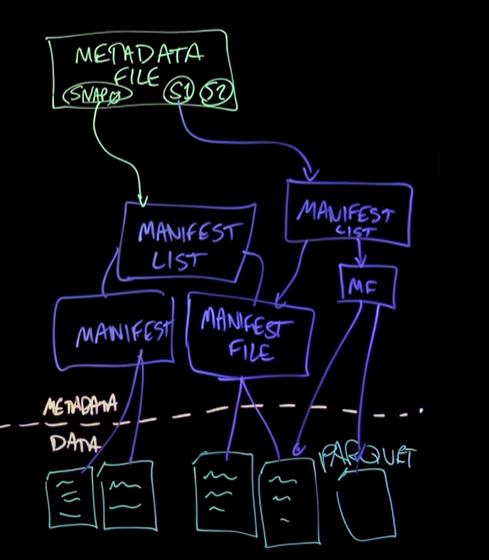 METADATA
FILE
SNAP0 S1 S2
MANIFEST
LIST
MANIFEST
LIST
MF
MANIFEST
MANIFEST
FILE
METADATA
DATA
PARQUET